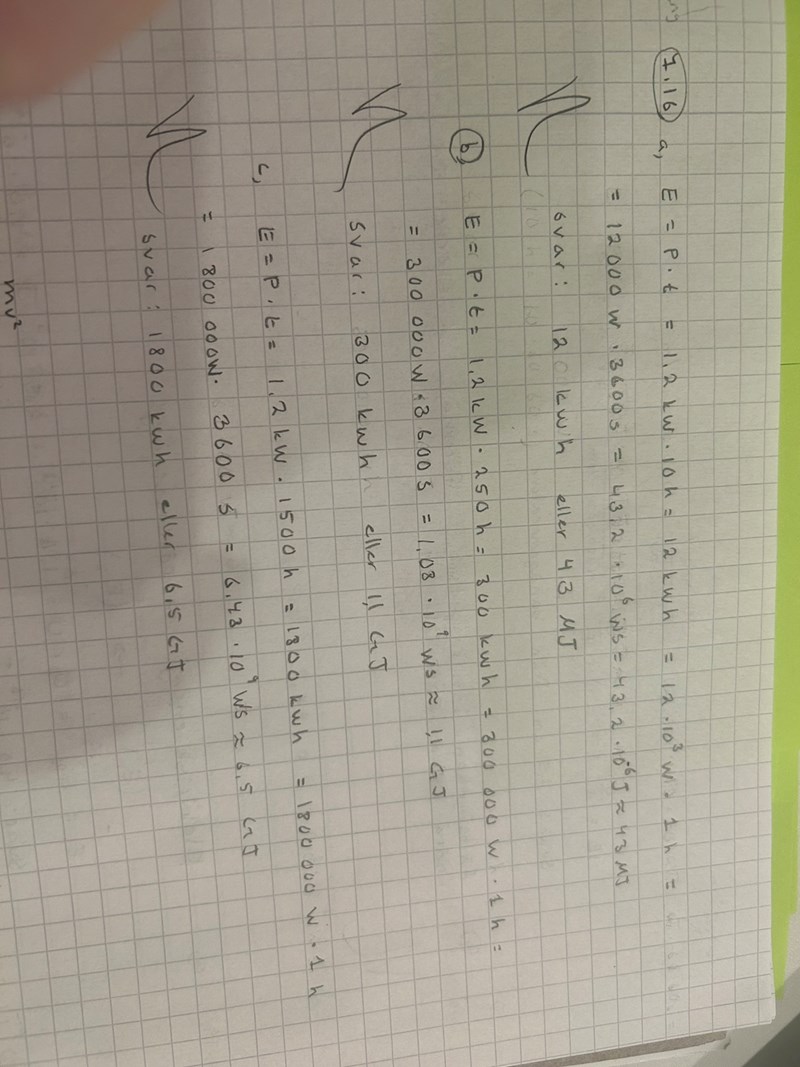 7.16 a, E = P · t = 1,2 kW · 10h = 12 kWh = 12 · 10³ W · 1h =
= 12 000 W · 3600s = 43,2 · 10⁶ Ws = 43,2 · 10⁶ J ≈ 43 MJ
svar: 12 kWh eller 43 MJ
b, E = P · t = 1,2 kW · 250h = 300 kWh = 300 000 W · 1h =
= 300 000W · 3600s = 1,08 · 10⁹ Ws ≈ 1,1 GJ
svar: 300 kWh eller 1,1 GJ
c, E = P · t = 1,2 kW · 1500 h = 1800 kWh = 1800 000 W · 1h
= 1 800 000W · 3600 s = 6,48 · 10⁹ Ws ≈ 6,5 GJ
svar: 1800 kWh eller 6,5 GJ
mv²